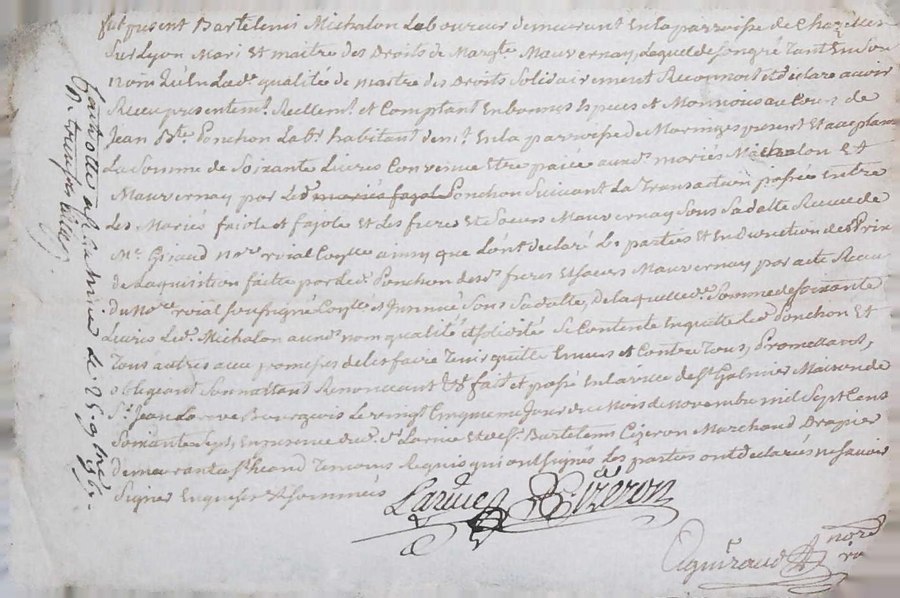 fut présent Bartelemis Michalon Laboureur demeurant En la parroisse de Chazelles
Sur Lyon Mari Et maitre des Droits de Margte. Mauvernay, Laquel de son gré tant En Son
nom qu'En Lade. qualité de maitre des Droits Solidairement Reconnoit et déclare avoir
Receu presentemt. Reellemt. et Comptant En bonnes Especes et Monnoies au Cours de
Jean Bte. Ponchon Labr. habitant demt. En la parroisse de Maringes present Et acceptant
La Somme de Soixante Livres Convenue Etre paiée auxd. mariés Michalon Et
Mauvernay par Led. mariés fayol Ponchon Suivant La Transaction passée Entre
Les Mariés faiole et fayole Et des frere Et Soeurs Mauvernay Sous Sa datte Receue de
Me. Giraud nore. roial ainsy que L'ont déclaré Les parties et En Diminution des Prix
de Laquisition faitte par led. Ponchon desd. freres Et soeurs Mauvernay par acte Receu
du Nore. roial Soussigné Sous Sa datte, De laquelle de. Somme de Soixante
Livres Led. Michalon aux nom qualité et solidité Se Contente En quitte Led. Ponchon Et
Tous autres avec promesse de les faire Tenir quitte Envers et Contre Tous, Promettant,
obligeant Soumettant Renoncant &a. fait et passé En la ville de St. Galmier Maison de
Sr. Jean Larue Bourgeois Le vingt Cinquieme Jour du Mois de Novembre mil Sept Cens
Soixante Sept, En presence dud. Sr. Larue Et de Sr. Bartelemis Cizeron Marchand Drapier
demeurant a St. heand Temoins Requis qui ont signés Les parties ont declarés ne Savoir
Signer Enquises Et Sommées
Larue Cizeron
Giraud nore.
ral
de 25 9bre
1767